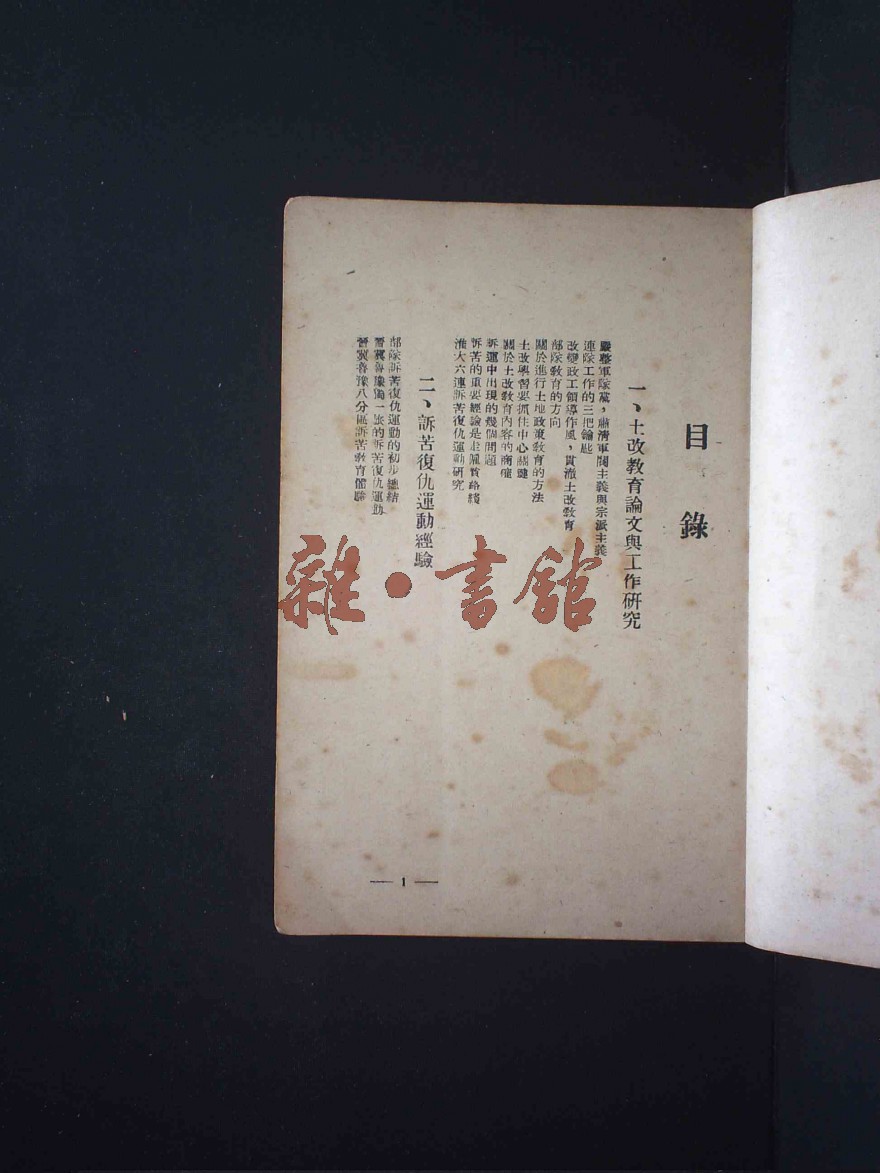 目錄
一、土改教育論文與工作研究
嚴整軍隊黨，肅清軍閥主義與宗派主義
連隊工作的三把鑰匙
改變政工領導作風，貫澈土改教育
部隊教育的方向
關於進行土地政策教育的方法
土改學習要抓住中心關鍵
關於土改教育內容的商榷
訴運中出現的幾個問題
訴苦的重要經驗是走羣衆路綫
淮大六連訴苦復仇運動研究
二、訴苦復仇運動經驗
部隊訴苦復仇運動的初步總結
晋冀魯豫獨一旅的訴苦復仇運動
晋冀魯豫八分區訴苦教育體驗
— 1 —
雜·書館